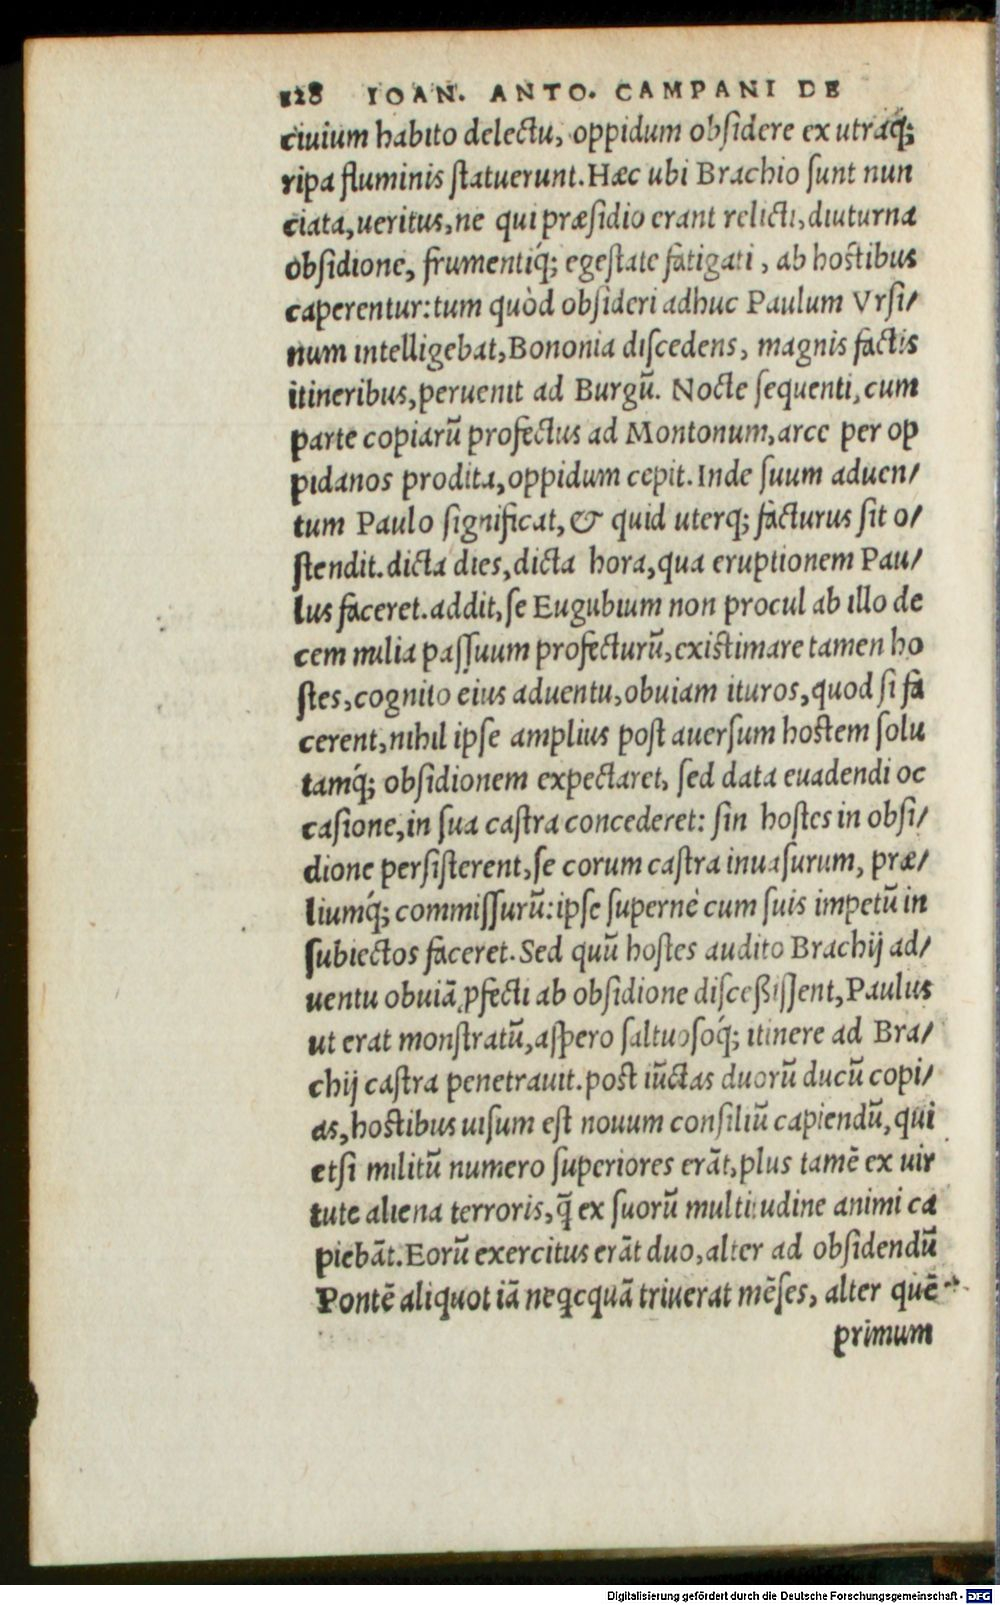 128 IOAN. ANTO. CAMPANI DE
ciuium habito delectu, oppidum obſidere ex utraq́;
ripa fluminis ſtatuerunt. Hæc ubi Brachio ſunt nun
ciata, ueritus, ne qui præſidio erant relicti, diuturna
obſidione, frumentiq́; egeſtate fatigati, ab hoſtibus
caperentur: tum quòd obſideri adhuc Paulum Vrſi/
num intelligebat, Bononia diſcedens, magnis factis
itineribus, peruenit ad Burgū. Nocte ſequenti, cum
parte copiarū profectus ad Montonum, arce per op
pidanos prodita, oppidum cepit. Inde ſuum aduen/
tum Paulo ſignificat, & quid uterq; facturus ſit o/
ſtendit. dicta dies, dicta hora, qua eruptionem Pau/
lus faceret. addit, ſe Eugubium non procul ab illo de
cem milia paſſuum profecturū, existimare tamen ho
ſtes, cognito eius aduentu, obuiam ituros, quod ſi fa
cerent, nihil ipſe amplius poſt auerſum hoſtem ſolu
tamq́; obſidionem expectaret, ſed data euadendi oc
caſione, in ſua caſtra concederet: ſin hoſtes in obſi/
dione perſiſterent, ſe eorum caſtra inuaſurum, præ/
liumq́; commiſſurū: ipſe ſupernè cum ſuis impetū in
ſubiectos faceret. Sed quū hoſtes audito Brachij ad/
uentu obuiā ꝓfecti ab obſidione diſceßiſſent, Paulus
ut erat monſtratū, aſpero ſaltuoſoq́; itinere ad Bra/
chij caſtra penetrauit. poſt iūctas duorū ducū copi/
as, hoſtibus uiſum eſt nouum conſiliū capiendū, qui
etſi militū numero ſuperiores erāt, plus tamē ex uir
tute aliena terroris, q̄ ex ſuorū multitudine animi ca
piebāt. Eorū exercitus erāt duo, alter ad obſidendū
Pontē aliquot iā neqcquā triuerat mēſes, alter quē
primum
Digitalisierung gefördert durch die Deutsche Forschungsgemeinschaft - DFG